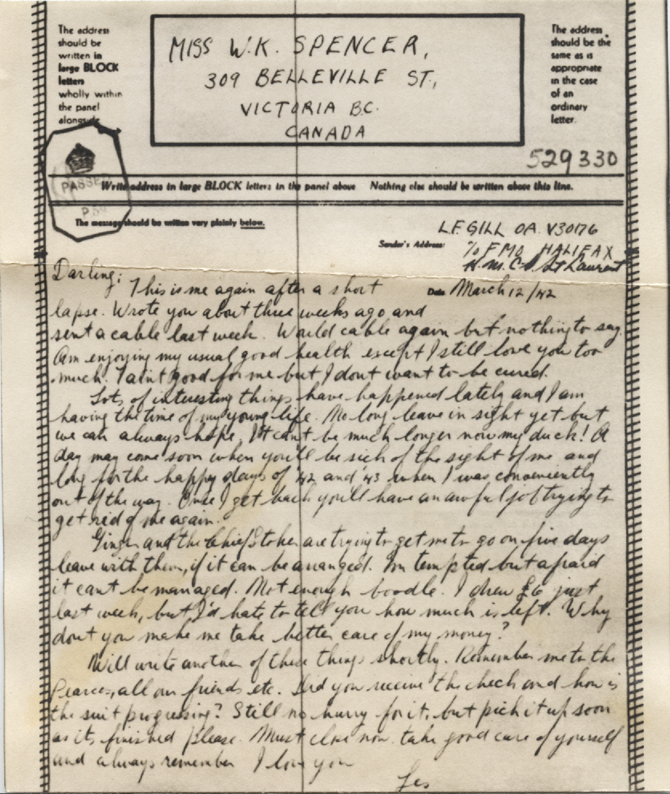 The address
should be
written in
large BLOCK
letters
wholly within
the panel
alongside.
MISS W.K. SPENCER,
309 BELLEVILLE ST.,
VICTORIA B.C.
CANADA
The address
should be the
same as is
appropriate
in the case
of an
ordinary
letter.
529330
PASSED
Write address in large BLOCK letters in the panel above Nothing else should be written above this line.
The message should be written very plainly below.
L.F. GILL OA. V30176
Sender's Address: % FMO HALIFAX
H.M.C.S St Laurent
Date March 12/42
Darling; This is me again after a short
lapse. Wrote you about three weeks ago and
sent a cable last week. Would cable again but nothing to say.
Am enjoying my usual good health except I still love you too
much. T'aint good for me but I dont want to be cured.
Lots of interesting things have happened lately and I am
having the time of my young life. No long leave in sight yet but
we can always hope, It can't be much longer now my duck! A
day may come soon when you'll be sick of the sight of me and
long for the happy days of '42 and '43 when I was conveniently
out of the way. Once I get back you'll have an awful job trying to
get rid of me again.
and the Chief Stoker are trying to get me to go on five days
leave with them, if it can be arranged. I'm tempted but afraid
it cant be managed. Not enough boodle. I drew £6 just
last week, but I'd hate to tell you how much is left. Why
dont you make me take better care of my money?
Will write another of these things shortly. Remember me to the
Pearces, all our friends etc. Did you receive the check and how is
the suit progressing? Still no hurry for it, but pick it up soon
as its finished please. Must close now. take good care of yourself
and always remember I love you
Les